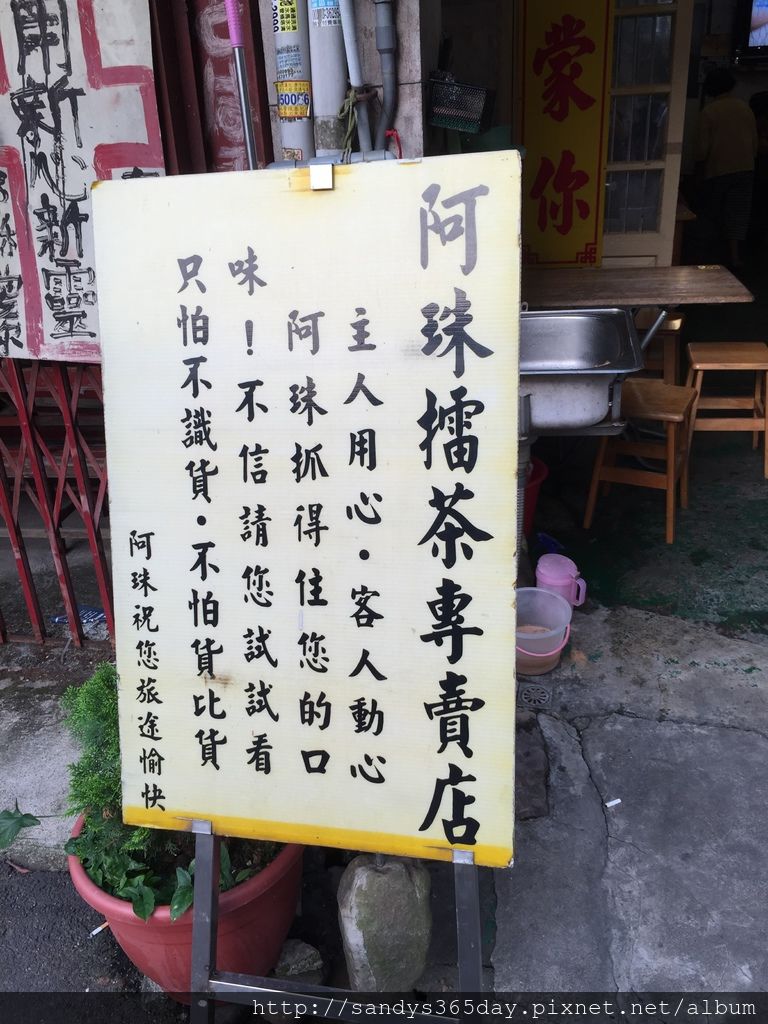 阿珠擂茶專賣店
主人用心·客人動心
阿珠抓得住您的口
味！不信請您試試看
只怕不識貨·不怕貨比貨
阿珠祝您旅途愉快
蒙你
開新心新靈
50006
http://sandys365day.pixnet.net/album